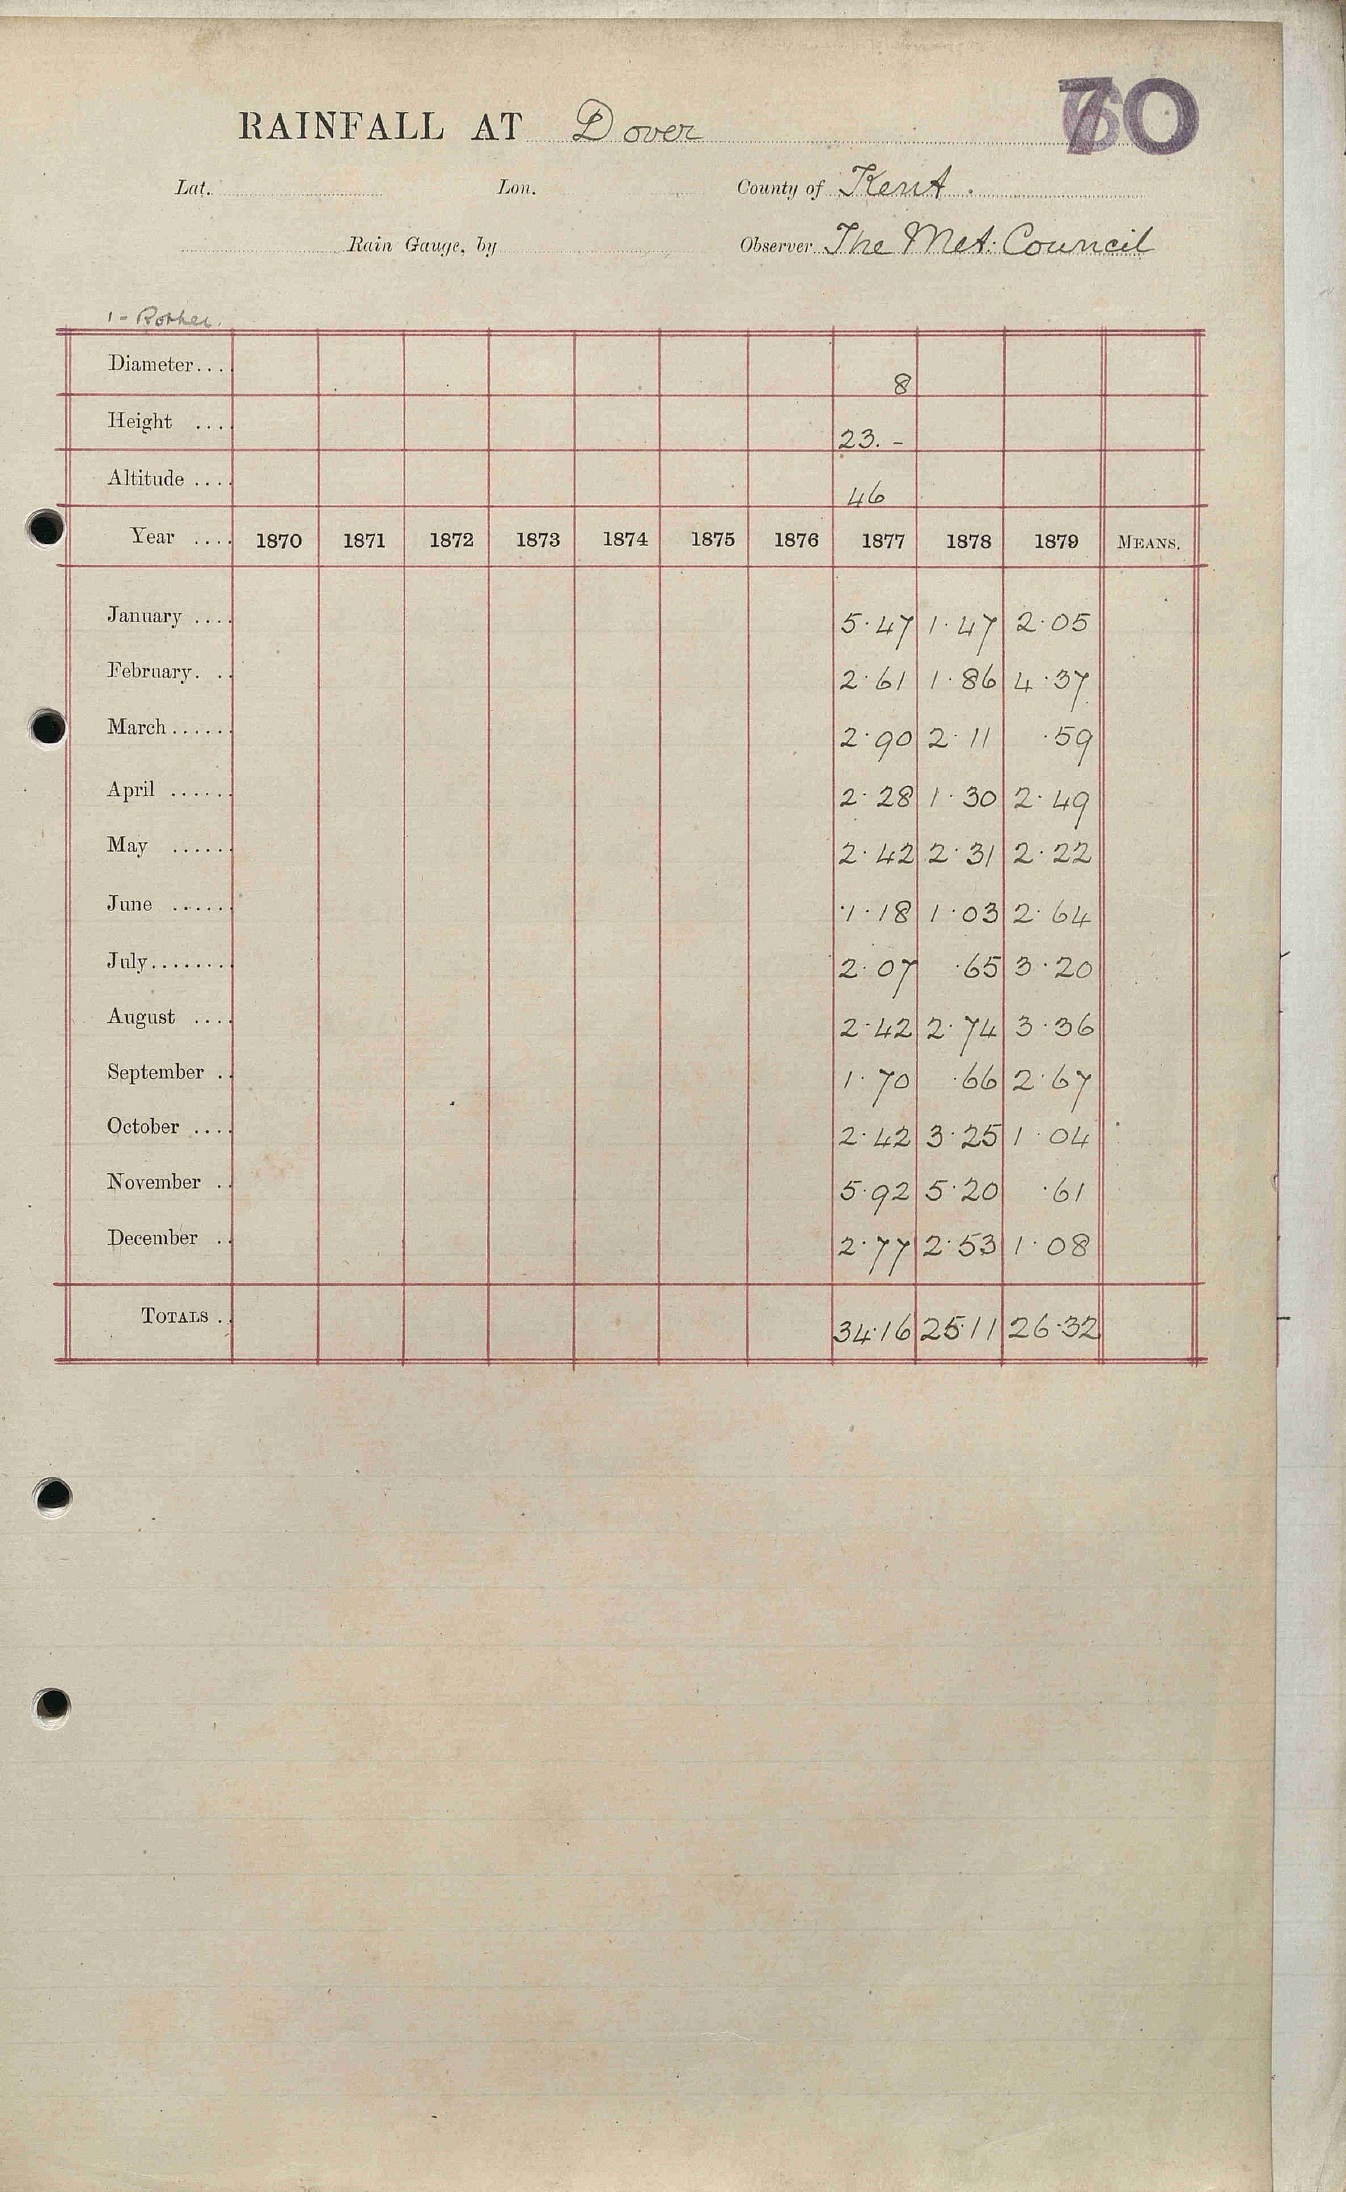 70
RAINFALL AT Dover
Lat. Lon. County of Kent.
Rain Gauge, by Observer The Met: Council
1 - Rother.
Diameter... 8
Height ... 23. -
Altitude .... 46
Year .... 1870 1871 1872 1873 1874 1875 1876 1877 1878 1879 MEANS.
January .... 5.47 1.47 2.05
February. .. 2.61 1.86 4.37
March...... 2.90 2.11 .59
April ...... 2.28 1.30 2.49
May ...... 2.42 2.31 2.22
June ...... 1.18 1.03 2.64
July........ 2.07 .65 3.20
August .... 2.42 2.74 3.36
September .. 1.70 .66 2.67
October .... 2.42 3.25 1.04
November .. 5.92 5.20 .61
December .. 2.77 2.53 1.08
TOTALS .. 34.16 25.11 26.32